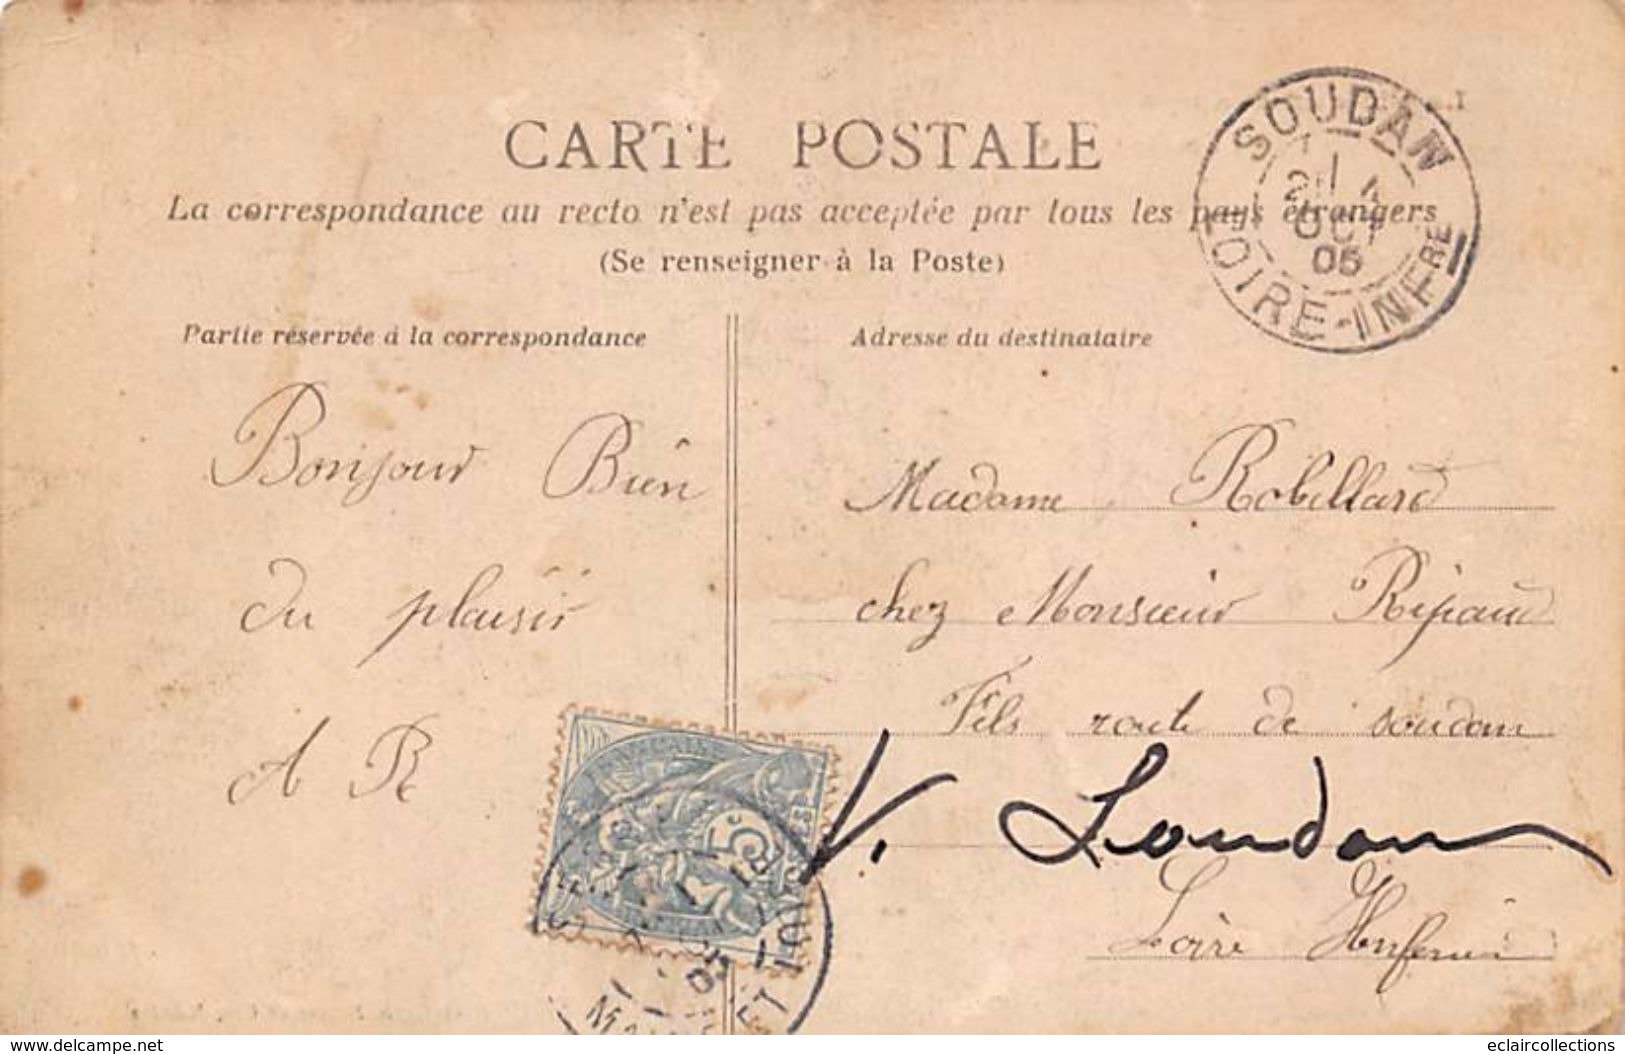 CARTE POSTALE
La correspondance au recto n'est pas acceptée par tous les pays étrangers
(Se renseigner à la Poste)
SOUDAN
OCT
05
LOIRE-INFRE
Partie réservée à la correspondance
Bonjour Bien
du plaisir
A R
Adresse du destinataire
Madame Robillard
chez Monsieur Ripaud
Fils route de soudan
V. Soudan
Loire Inferieu
5c
delcampe.net
eclaircollections